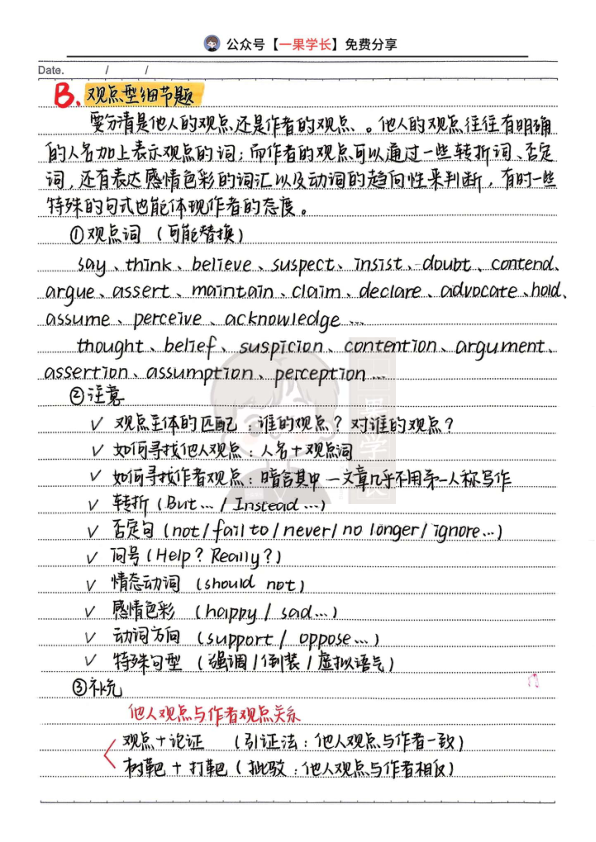 公众号【一果学长】免费分享
Date. / /
B. 观点型细节题
要分清是他人的观点还是作者的观点。他人的观点往往有明确
的人名加上表示观点的词；而作者的观点可以通过一些转折词、否定
词，还有表达感情色彩的词汇以及动词的趋向性来判断，有时一些
特殊的句式也能体现作者的态度。
①观点词（可能替换）
say、think、believe、suspect、insist、doubt、contend、
argue、assert、maintain、claim、declare、advocate、hold、
assume、perceive、acknowledge …
thought、belief、suspicion、contention、argument、
assertion、assumption、perception …
②注意
✓ 观点主体的匹配：谁的观点？对谁的观点？
✓ 如何寻找他人观点：人名+观点词
✓ 如何寻找作者观点：暗含其中一文章几乎不用第一人称写作
✓ 转折（But… / Instead …）
✓ 否定句（not / fail to / never / no longer / ignore …）
✓ 问号（Help？Really？）
✓ 情态动词（should not）
✓ 感情色彩（happy / sad …）
✓ 动词方向（support / oppose …）
✓ 特殊句型（强调 / 倒装 / 虚拟语气）
③补充
他人观点与作者观点关系
观点+论证（引证法：他人观点与作者一致）
树靶+打靶（批驳：他人观点与作者相反）
一果学长